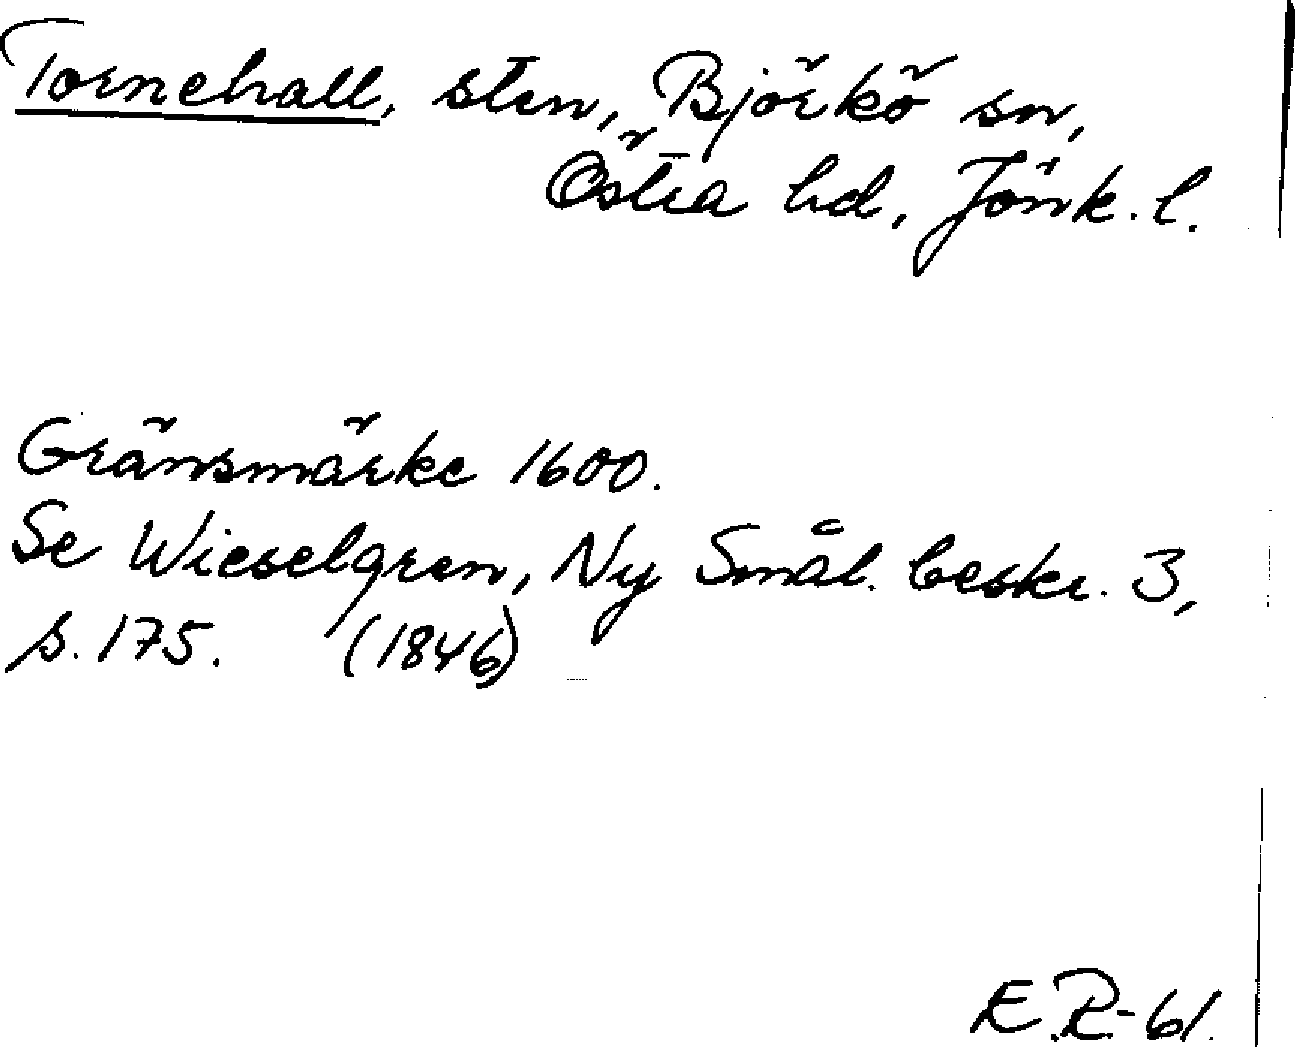 Tornehall, sten, Björkö sn,
Östra hd, Jönk. l.
Gränsmärke 1600.
Se Wieselgren, Ny Smål. beskr. 3,
s. 175. (1846)
E.R-61.